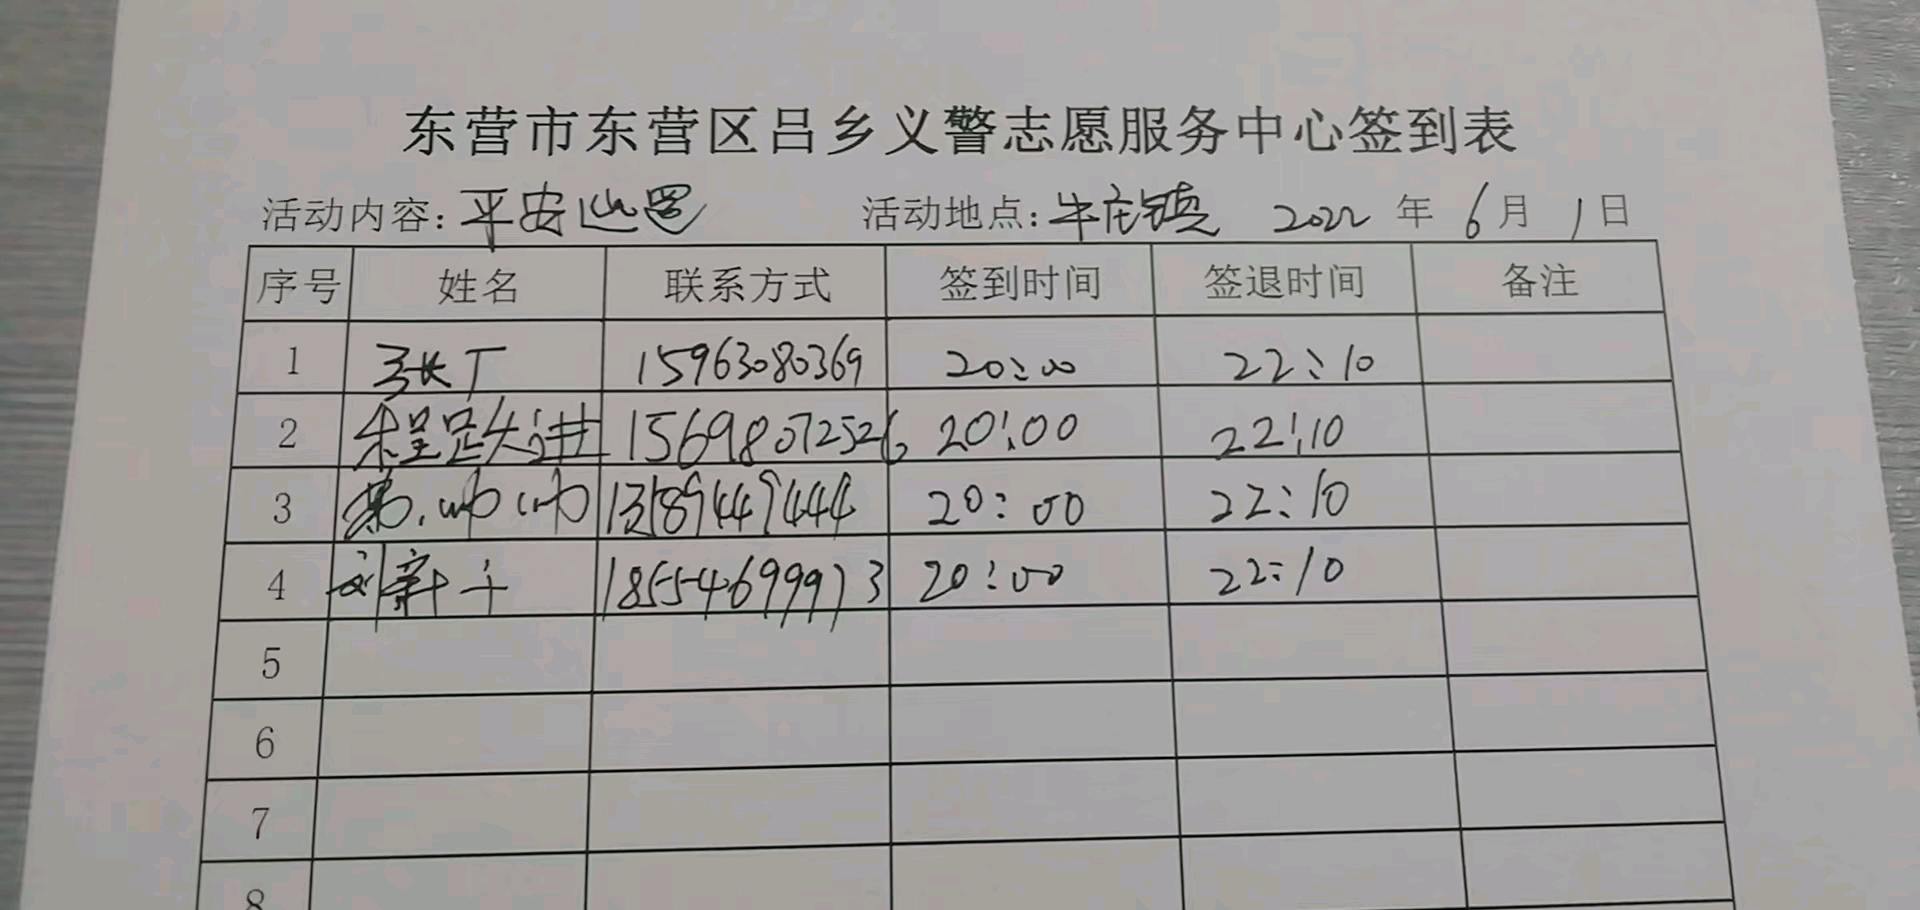 东营市东营区吕乡义警志愿服务中心签到表
活动内容：平安巡逻 活动地点：牛庄镇 2022 年 6 月 1 日
序号 姓名 联系方式 签到时间 签退时间 备注
1 15963080369 20:00 22:10
2 15698072526 20:00 22:10
3 20:00 22:10
4 刘新 18554699973 20:00 22:10
5
6
7
8